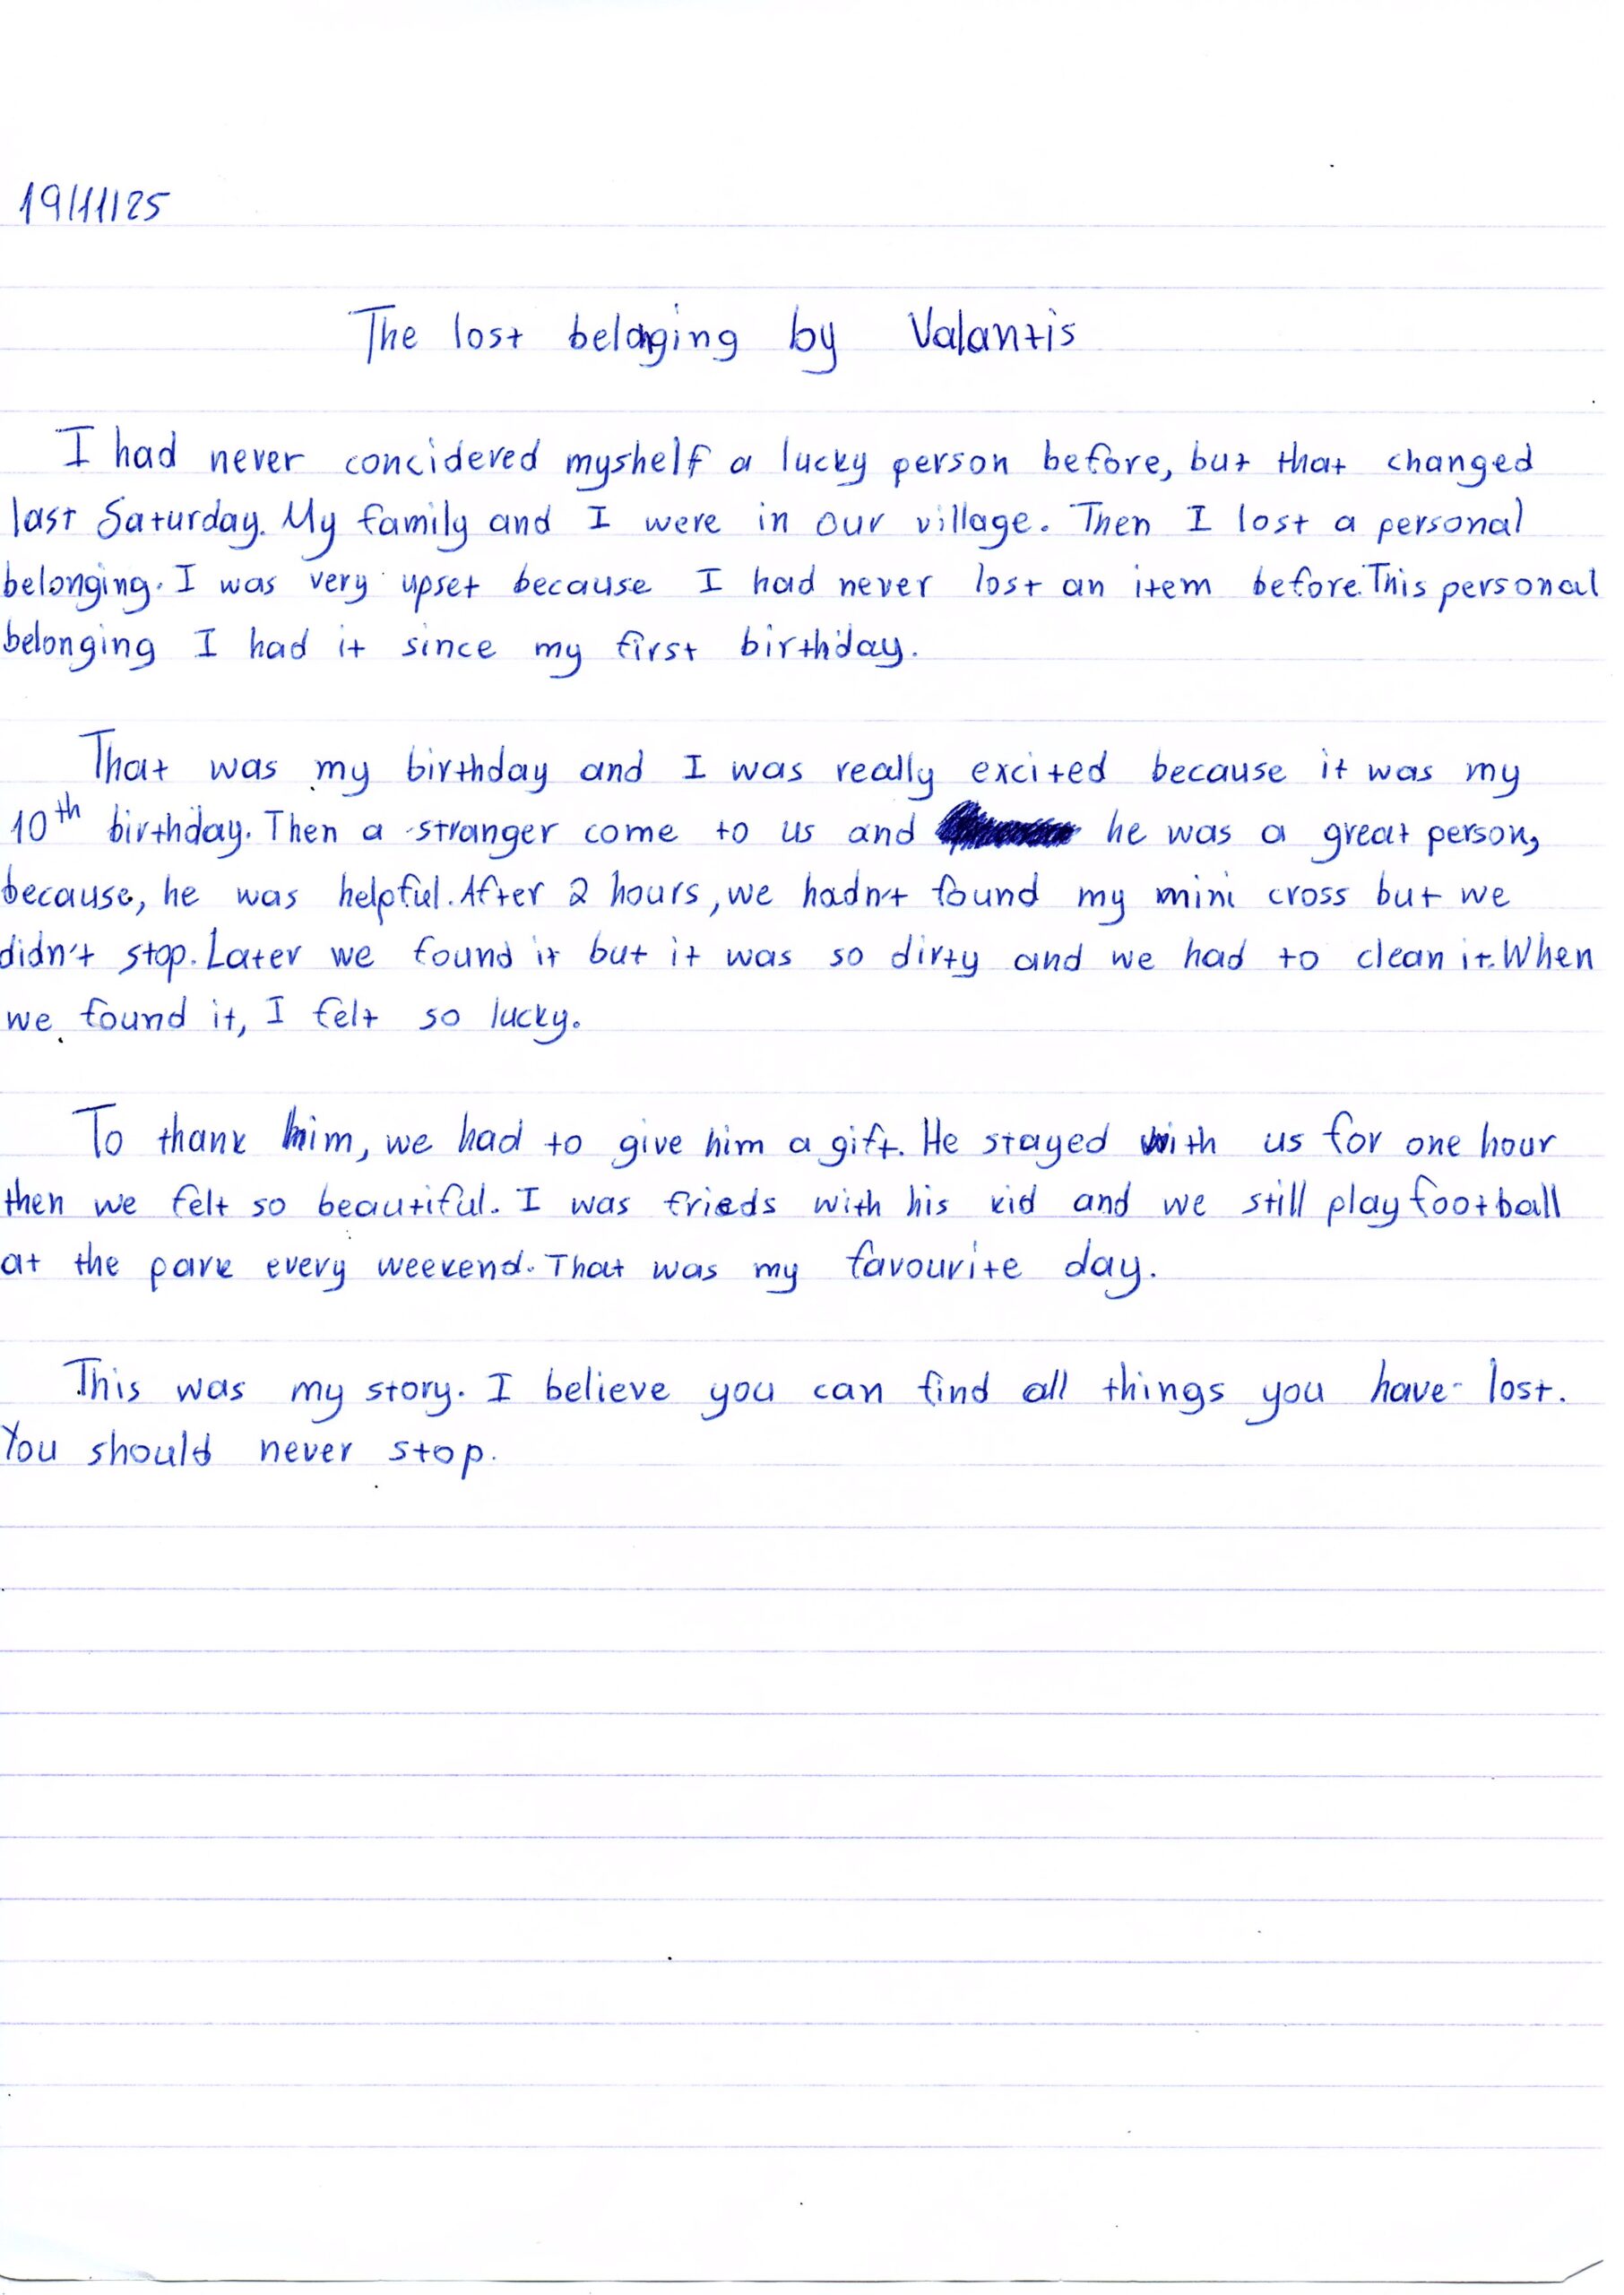 19/11/25
The lost belonging by Valantis
I had never concidered myshelf a lucky person before, but that changed
last Saturday. My family and I were in our village. Then I lost a personal
belonging. I was very upset because I had never lost an item before. This personal
belonging I had it since my first birthday.
That was my birthday and I was really excited because it was my
10th birthday. Then a stranger come to us and he was a great person,
because, he was helpful. After 2 hours, we hadn't found my mini cross but we
didn't stop. Later we found it but it was so dirty and we had to clean it. When
we found it, I felt so lucky.
To thank him, we had to give him a gift. He stayed with us for one hour
then we felt so beautiful. I was frieds with his kid and we still play football
at the park every weekend. That was my favourite day.
This was my story. I believe you can find all things you have lost.
You should never stop.